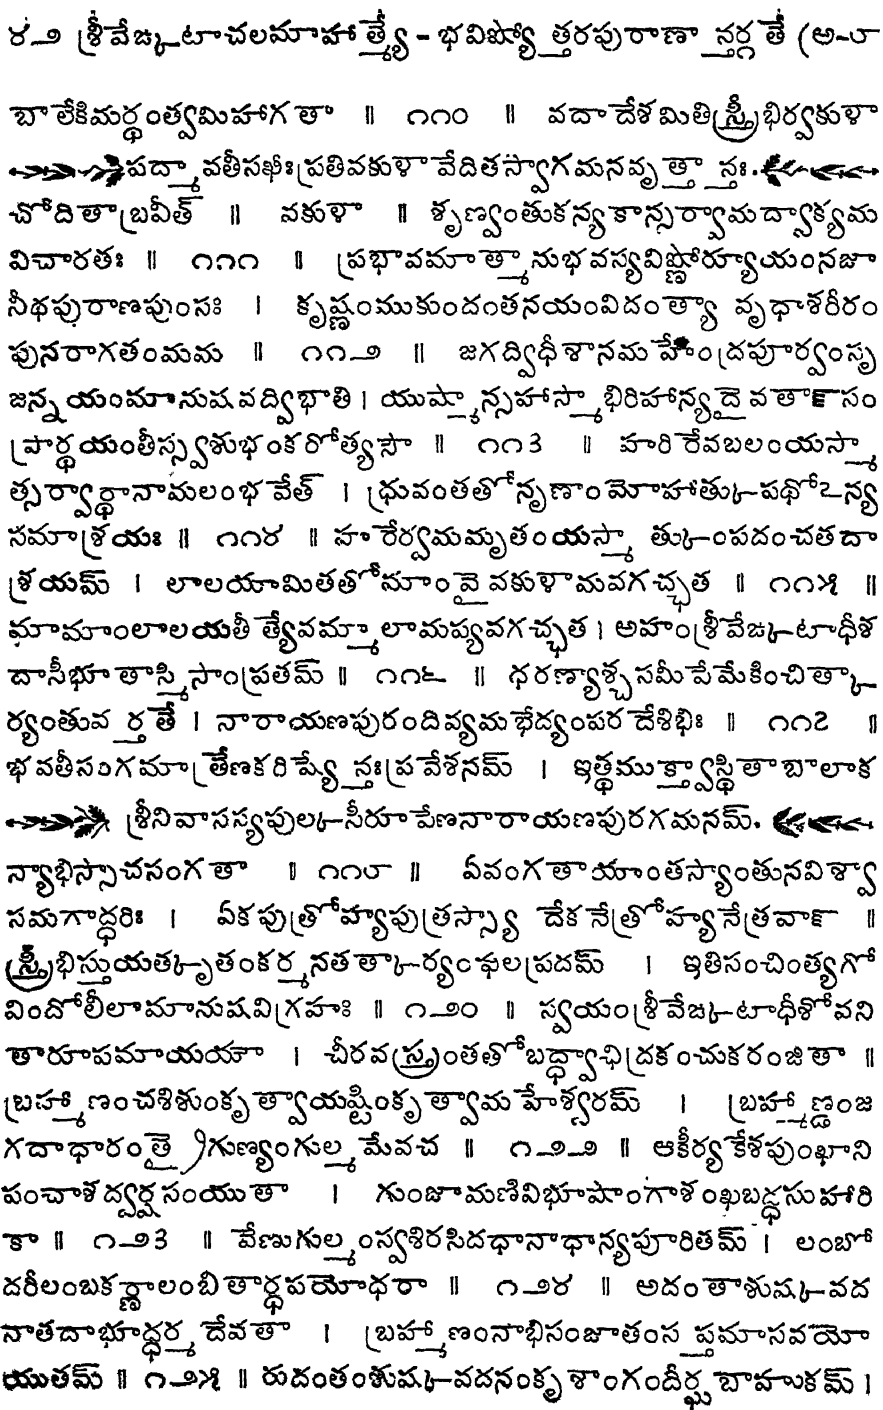 ౪౨ శ్రీవేఙ్కటాచలమాహాత్మ్యే - భవిష్యోత్తరపురాణాన్తర్గతే (అ-౧
బాలేకిమర్థంత్వమిహాగతా ॥ ౧౧౦ ॥ వదాదేశమితిస్త్రీభిర్వకుళా
పద్మావతీసఖీః ప్రతివకుళావేదితస్వాగమనవృత్తాన్తః.
చోదితాబ్రవీత్ ॥ వకుళా ॥ శృణ్వంతుకన్యకాస్సర్వామద్వాక్యమ
విచారతః ॥ ౧౧౧ ॥ ప్రభావమాత్మానుభవస్యవిష్ణోర్యూయంనజా
నీథపురాణపుంసః । కృష్ణంముకుందంతనయంవిదంత్యా వృథాశరీరం
పునరాగతంమమ ॥ ౧౧౨ ॥ జగద్విధీశానమహేంద్రపూర్వంసృ
జన్నయంమానుషవద్విభాతి । యుష్మాన్సహాస్మాభిరిహాన్యదైవతాక్ సం
ప్రార్థయంతీస్స్వశుభంకరోత్యసౌ ॥ ౧౧౩ ॥ హరిరేవబలంయస్మా
త్సర్వార్థానామలంభవేత్ । ధ్రువంతతోనృణాంమోహాత్కుపథోఽన్య
సమాశ్రయః ॥ ౧౧౪ ॥ హరేర్వమమృతంయస్మాత్కుంపదంచతదా
శ్రయమ్ । లాలయామితతోనూంవైవకుళామవగచ్ఛత ॥ ౧౧౫ ॥
మామాంలాలయతీత్యేవమ్మాలామప్యవగచ్ఛత । అహంశ్రీవేఙ్కటాధీశ
దాసీభూతాస్మిసాంప్రతమ్ ॥ ౧౧౬ ॥ ధరణ్యాశ్చసమీపేమేకించిత్కా
ర్యంతువర్తతే । నారాయణపురందివ్యమభేద్యంపరదేశిభిః ॥ ౧౧౭ ॥
భవతీసంగమాత్రేణకరిష్యేన్తఃప్రవేశనమ్ । ఇత్థముక్త్వాస్థితాబాలాక
శ్రీనివాసస్యపుల్కసీరూపేణనారాయణపురగమనమ్.
న్యాభిస్సాచసంగతా ॥ ౧౧౮ ॥ ఏవంగతాయాంతస్యాంతునవిశ్వా
సమగాద్ధరిః । ఏకపుత్రోహ్యపుత్రస్స్యాదేకనేత్రోహ్యనేత్రవాక్ ॥
స్త్రీభిస్తుయత్కృతంకర్మనతత్కార్యంఫలప్రదమ్ । ఇతిసంచింత్యగో
విందోలీలామానుషవిగ్రహః ॥ ౧౨౦ ॥ స్వయంశ్రీవేఙ్కటాధీశోవని
తారూపమాయయౌ । చీరవస్త్రంతతోబద్ధ్వాఛిద్రకంచుకరంజితా ॥
బ్రహ్మాణంచశిశుంకృత్వాయష్టింకృత్వామహేశ్వరమ్ । బ్రహ్మాణ్డంజ
గదాధారంత్రైగుణ్యంగుల్మమేవచ ॥ ౧౨౨ ॥ ఆకీర్యకేశపుంఖాని
పంచాశద్వర్షసంయుతా । గుంజామణివిభూషాంగాశంఖబద్ధసుహారి
కా ॥ ౧౨౩ ॥ వేణుగుల్మంస్వశిరసిదధానాధాన్యపూరితమ్ । లంబో
దరీలంబకర్ణాలంబితార్ధపయోధరా ॥ ౧౨౪ ॥ అదంతాశుష్కవద
నాతదాభూద్ధర్మదేవతా । బ్రహ్మాణంనాభిసంజాతంసప్తమాసవయో
యుతమ్ ॥ ౧౨౫ ॥ రుదంతంశుష్కవదనంకృశాంగందీర్ఘబాహుకమ్ ।